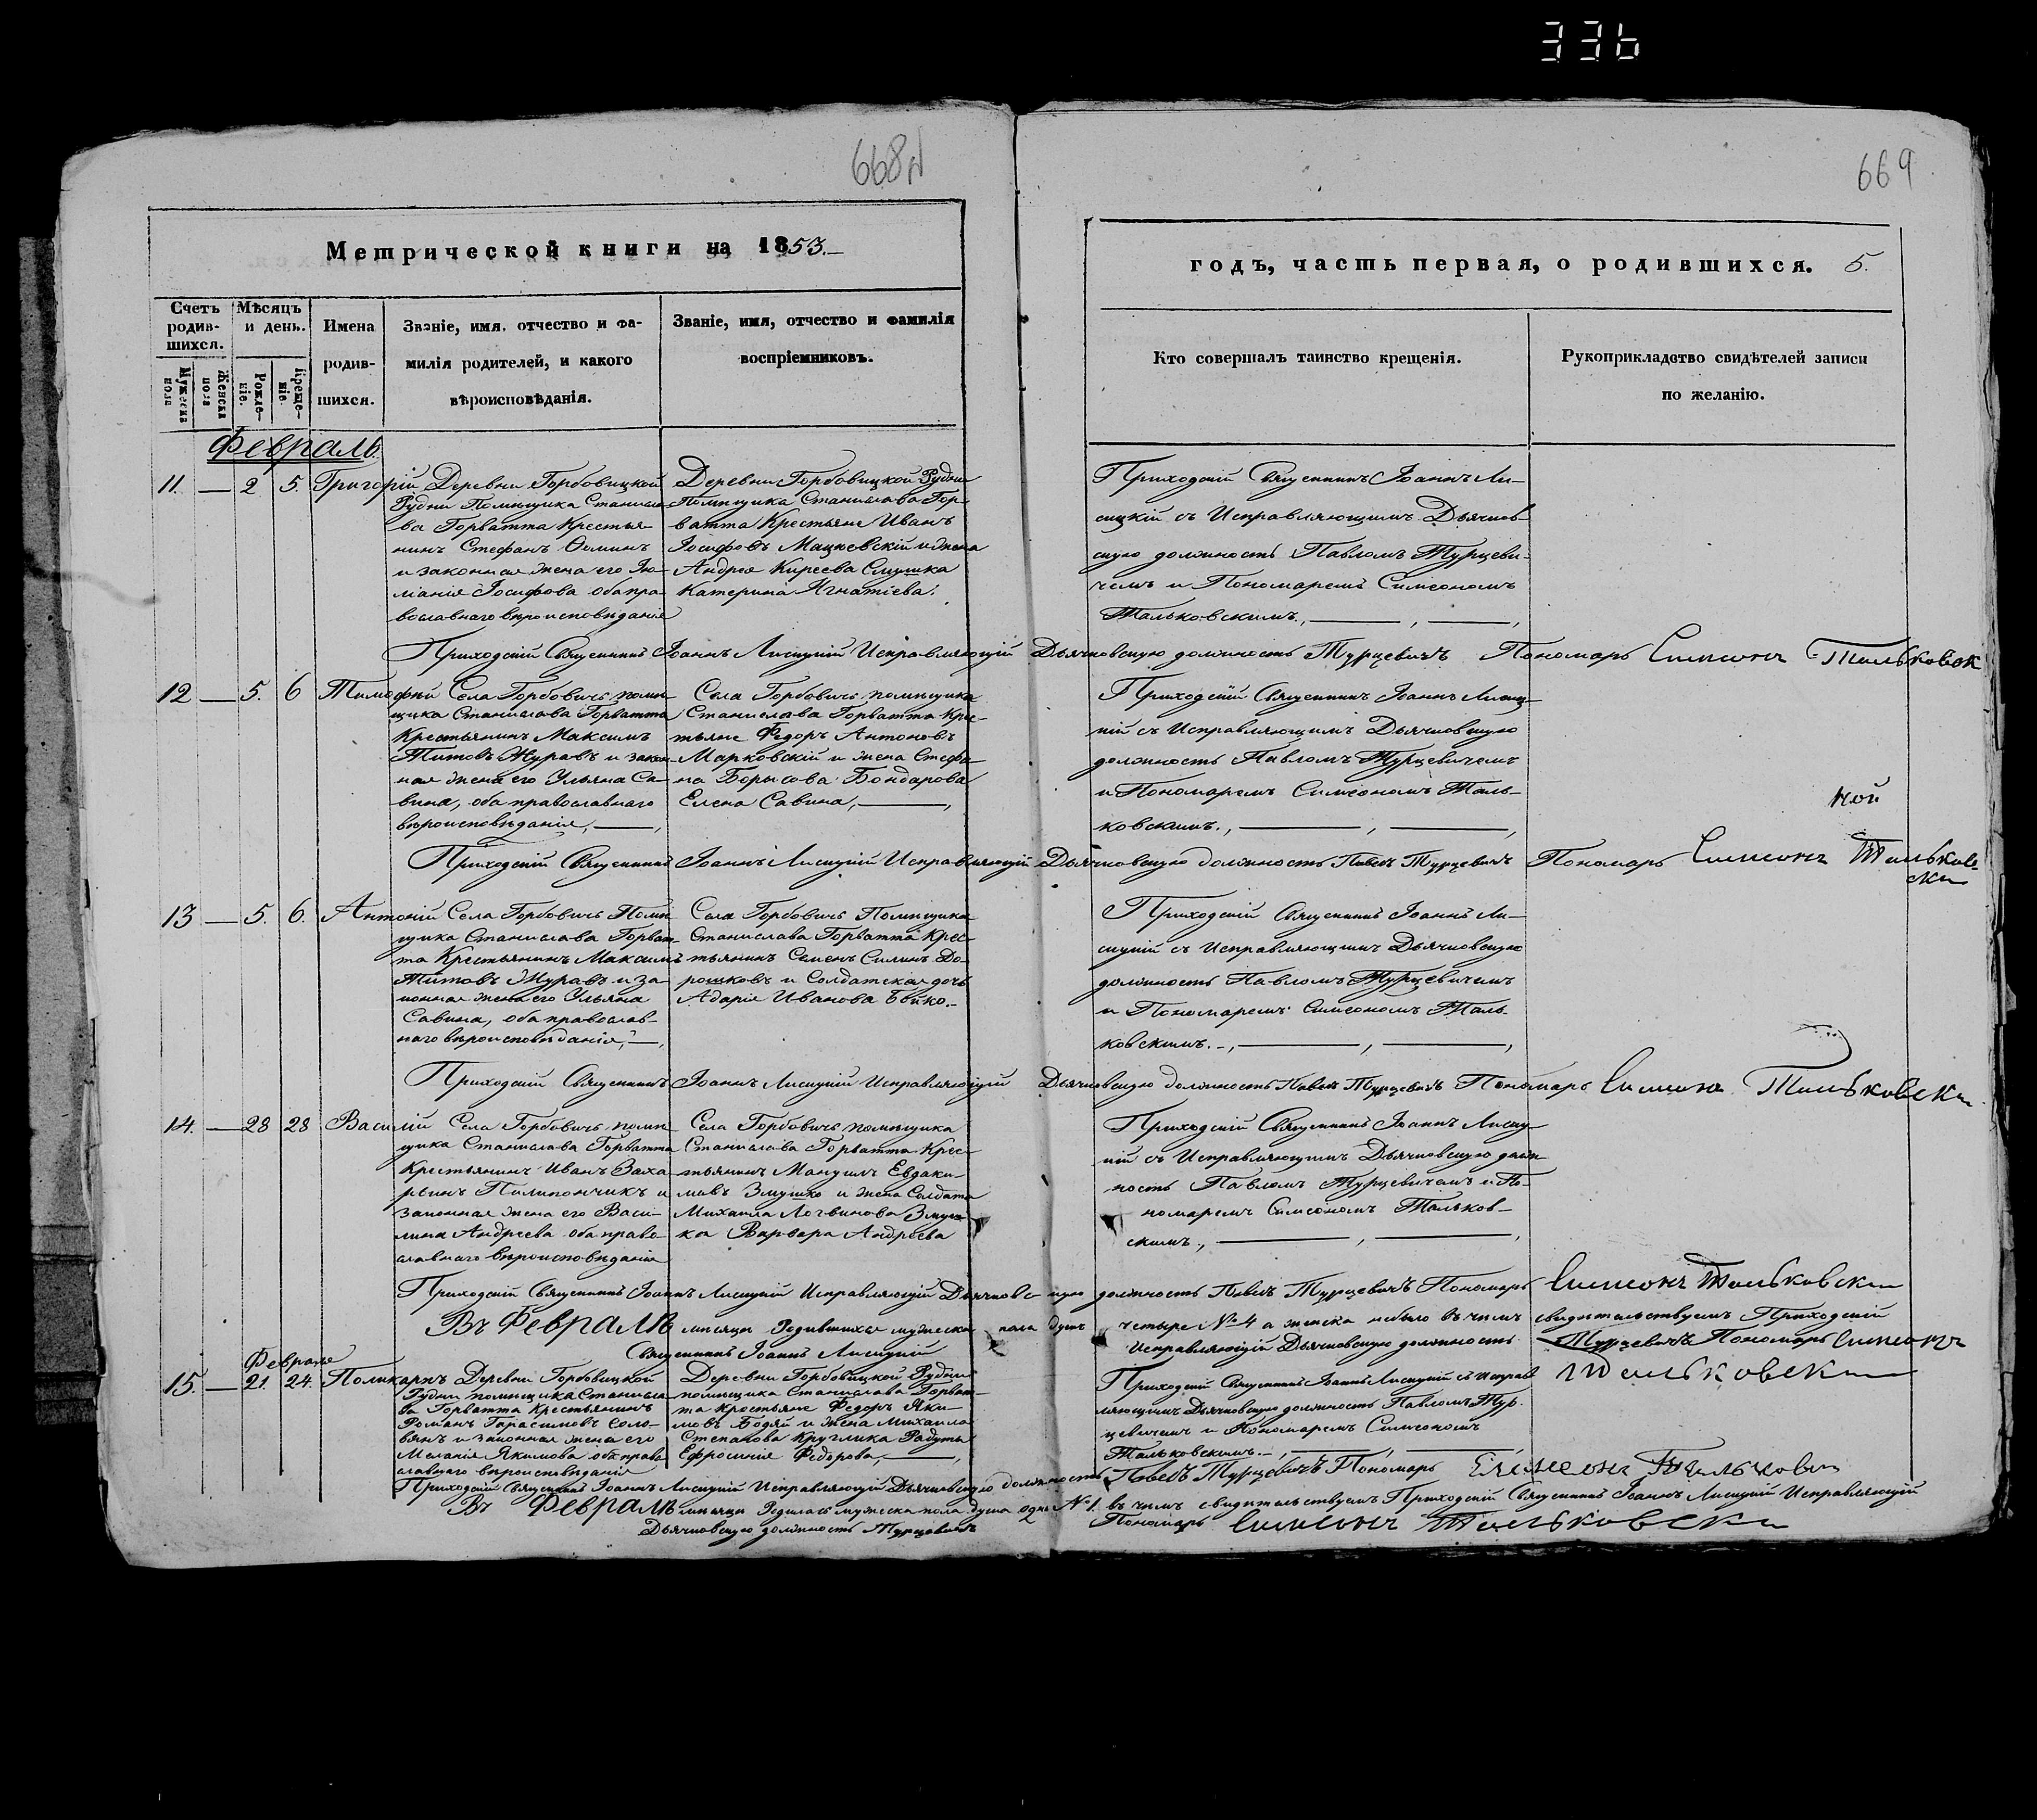 336
668
669
Метрической книги на 1853.
годъ, часть первая, о родившихся. 5.
Счетъ родившихся.
Мѣсяцъ и день.
Имена родившихся.
Званіе, имя, отчество и фамилія родителей, и какого вѣроисповѣданія.
Званіе, имя, отчество и фамилія воспріемниковъ.
Кто совершалъ таинство крещенія.
Рукоприкладство свидѣтелей записи по желанію.
Мужеска пола
Женска пола
Рожденіе.
Крещеніе.
Февраль.
11. — 2 5. Григорій
Деревни Горбовицкой
Рудни Помѣщика Станисла-
ва Горватта Крестья-
нинъ Стефанъ Ѳоминъ
и законная жена его
Іосифова оба пра-
вославнаго вѣроисповѣданія
Деревни Горбовицкой Рудни
Помѣщика Станислава Гор-
ватта Крестьяне Иванъ
Іосифовъ Мацкевскій и жена
Андрея Киреева
Катерина Игнатіева.
Приходскій Священникъ Іоаннъ Ли-
сицкій съ Исправляющимъ Дьячков-
скую должность Павломъ Турцеви-
чемъ и Пономаремъ Симеономъ
Тальковскимъ.
Приходскій Священникъ Іоаннъ Лисицкій Исправляющій Дьячковскую должность Турцевичъ Пономарь Симеонъ Тальковск
12 — 5. 6 Тимофей
Села Горбовичъ помѣ-
щика Станислава Горватта
Крестьянинъ Максимъ
Титовъ Журавъ и закон-
ная жена его Ульяна Са-
вина, оба православнаго
вѣроисповѣданія,
Села Горбовичъ помѣщика
Станислава Горватта Кре-
стьяне Федоръ Антоновъ
Марковскій и жена Стефа-
на Борысова Бондарова
Елена Савина,
Приходскій Священникъ Іоаннъ Лисиц-
кій съ Исправляющимъ Дьячковскую
должность Павломъ Турцевичемъ
и Пономаремъ Симеономъ Таль-
ковскимъ.,
Приходскій Священникъ Іоаннъ Лисицкій Исправляющій Дьячковскую должность Павелъ Турцевичъ Пономарь Симеонъ Тальков-
ски
13 — 5. 6. Антоній
Села Горбовичъ Помѣ-
щика Станислава Горват-
та Крестьянинъ Максимъ
Титовъ Журавъ и за-
конная жена его Ульяна
Савина, оба православ-
наго вѣроисповѣданія,
Села Горбовичъ Помѣщика
Станислава Горватта Крес-
тьянинъ Семенъ Силинъ До-
рошковъ и Солдатская дочь
Адарія Иванова Бойко.
Приходскій Священникъ Іоаннъ Ли-
сицкій съ Исправляющимъ Дьячковскую
должность Павломъ Турцевичемъ
и Пономаремъ Симеономъ Таль-
ковскимъ.
Приходскій Священникъ Іоаннъ Лисицкій Исправляющій Дьячковскую должность Павелъ Турцевичъ Пономарь Симеонъ Тальковски
14. — 28 28 Василій
Села Горбовичъ помѣ-
щика Станислава Горватта
Крестьянинъ Иванъ Заха-
рьинъ Пилипончикъ и
законная жена его Васи-
лина Андреева оба право-
славнаго вѣроисповѣданія
Села Горбовичъ помѣщика
Станислава Горватта Крес-
тьянинъ Мануилъ Евдаки-
мовъ Змушко и жена Солдата
Михаила Логвинова Змуш-
ка Варвара Андреева
Приходскій Священникъ Іоаннъ Лисиц-
кій съ Исправляющимъ Дьячковскую долж-
ность Павломъ Турцевичемъ и По-
номаремъ Симеономъ Тальков-
скимъ.,
Приходскій Священникъ Іоаннъ Лисицкій Исправляющій Дьячковскую должность Павелъ Турцевичъ Пономарь Симеонъ Тальковски
Въ Февралѣ мѣсяцѣ Родившихся мужеска пола душъ четыре №4 а женска небыло въ чемъ свидѣтельствуемъ Приходскій
Священникъ Іоаннъ Лисицкій Исправляющій Дьячковскую должность Турцевичъ Пономарь Симеонъ
Тальковски
Февраля
15. — 21. 24. Поликарпъ
Деревни Горбовицкой
Рудни помѣщика Станисла-
ва Горватта Крестьянинъ
Романъ Герасимовъ Соло-
вянъ и законная жена его
Меланія Якимова оба право-
славнаго вѣроисповѣданія
Деревни Горбовицкой Рудни
помѣщика Станислава Горват-
та крестьяне Федоръ Яки-
мовъ Бодяй и жена Михаила
Степанова Круглика Радуты
Ефросинія Федорова,
Приходскій Священникъ Іоаннъ Лисицкій съ Исправ-
ляющимъ Дьячковскую должность Павломъ Тур-
цевичемъ и Пономаремъ Симеономъ
Тальковскимъ.
Приходскій Священникъ Іоаннъ Лисицкій Исправляющій Дьячковскую должность Павелъ Турцевичъ Пономарь Симеонъ Тальковски
Въ Февралѣ мѣсяцѣ Родилась мужеска пола душа одна №1. въ чемъ свидѣтельствуемъ Приходскій Священникъ Іоаннъ Лисицкій Исправляющій
Дьячковскую должность Турцевичъ Пономарь Симеонъ Тальковски